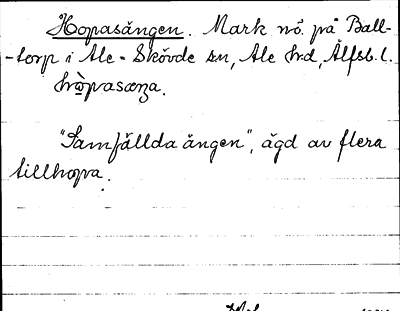 Hopasängen. Mark nö. på Ball-
-torp i Ale-Skövde sn, Ale hd, Älfsb. l.
hὼpasæŋa.
"Samfällda ängen", ägd av flera
tillhopa.